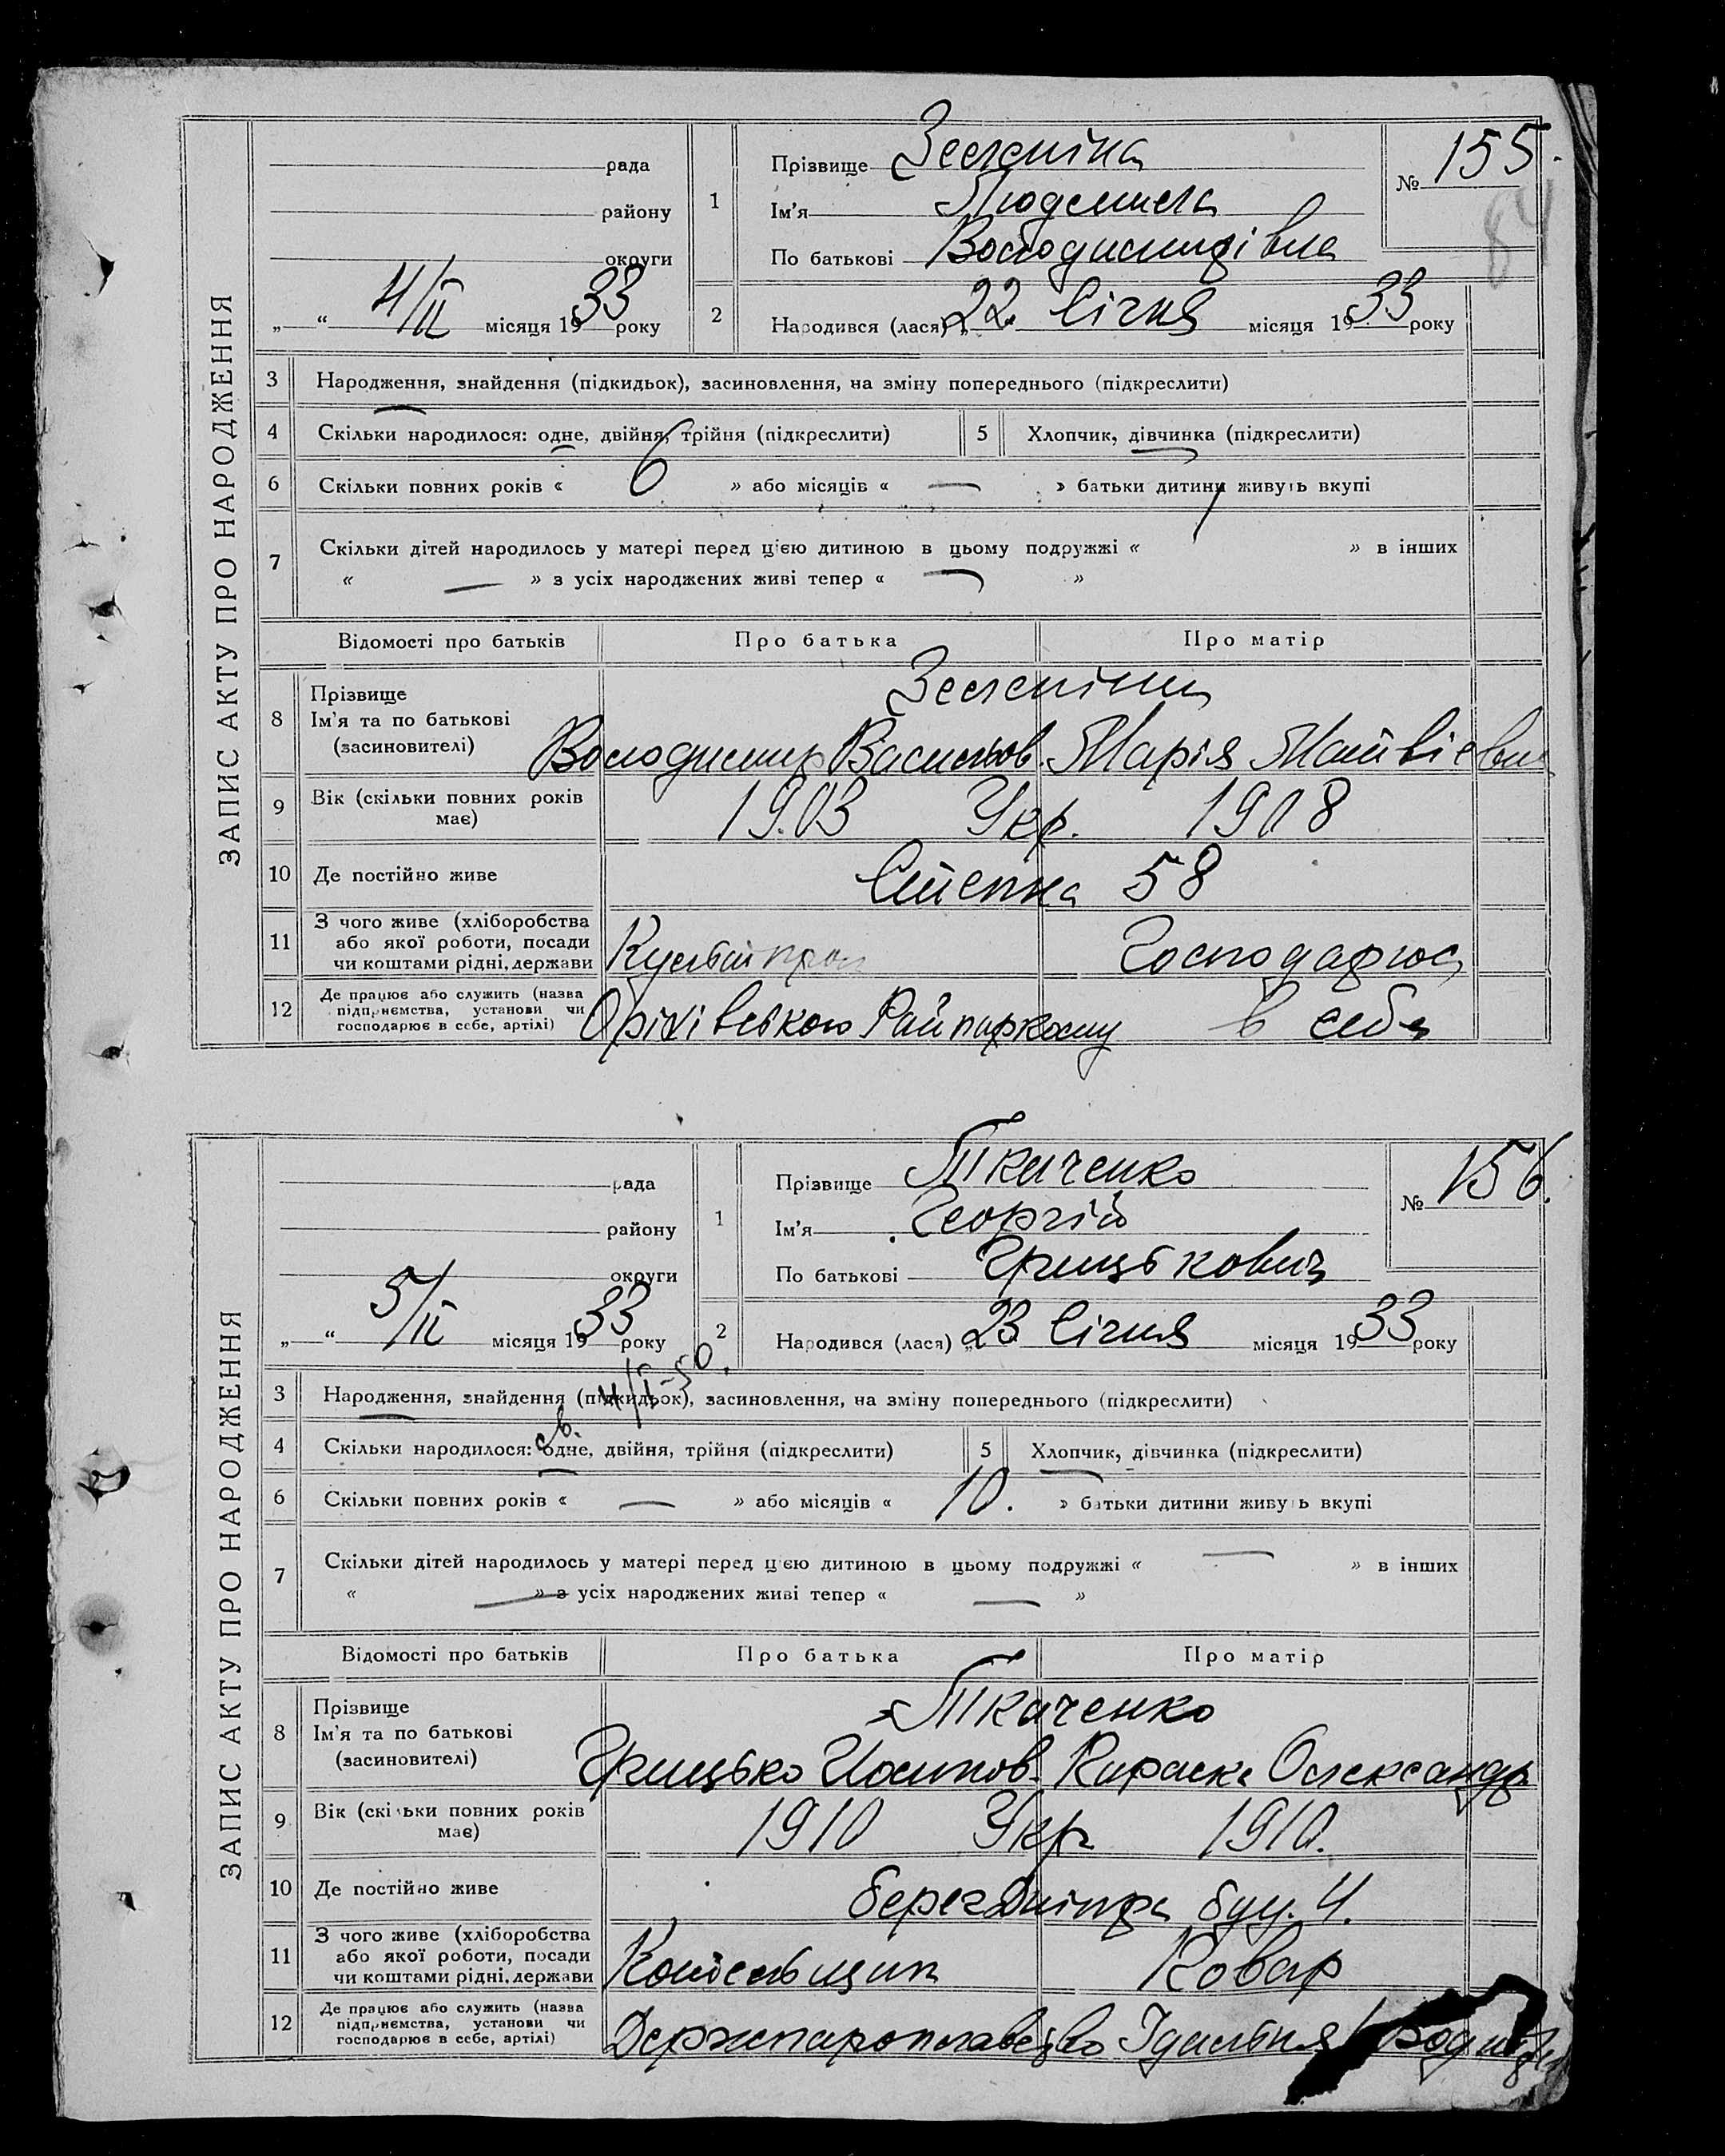 ЗАПИС АКТУ ПРО НАРОДЖЕННЯ
рада
району
округи
„ “ 4/II місяця 1933 року
1
Прізвище Зеленіна
Ім'я Людмила
По батькові Володимирівна
№ 155.
84
2 Народився (лася) „22. Січня місяця 1933 року
3 Народження, знайдення (підкидьок), засиновлення, на зміну попереднього (підкреслити)
4 Скільки народилося: одне, двійня, трійня (підкреслити)
5 Хлопчик, дівчинка (підкреслити)
6 Скільки повних років « 6 » або місяців « — » батьки дитини живуть вкупі
7 Скільки дітей народилось у матері перед цією дитиною в цьому подружжі « 1 » в інших
« — » з усіх народжених живі тепер « — »
Відомості про батьків Про батька Про матір
8 Прізвище
Ім'я та по батькові
(засиновителі)
Зеленіни
Володимир Васильов. Марія Матвієвна
9 Вік (скільки повних років має) 1903 Укр. 1908
10 Де постійно живе Степна 58
11 З чого живе (хліборобства
або якої роботи, посади
чи коштами рідні, держави
Культпроп Господарює
12 Де працює або служить (назва
підприємства, установи чи
господарює в себе, артілі)
Оріхівського Райпаркому в себе
ЗАПИС АКТУ ПРО НАРОДЖЕННЯ
рада
району
округи
„ “ 5/II місяця 1933 року
1
Прізвище Ткаченко
Ім'я Георгій
По батькові Грицькович
№ 156.
2 Народився (лася) „23 Січня місяця 1933 року
3 Народження, знайдення (підкидьок), засиновлення, на зміну попереднього (підкреслити)
св.
4 Скільки народилося: одне, двійня, трійня (підкреслити)
5 Хлопчик, дівчинка (підкреслити)
6 Скільки повних років « — » або місяців « 10. » батьки дитини живуть вкупі
7 Скільки дітей народилось у матері перед цією дитиною в цьому подружжі « — » в інших
« — » з усіх народжених живі тепер « — »
Відомості про батьків Про батька Про матір
8 Прізвище
Ім'я та по батькові
(засиновителі)
Ткаченко
Грицько Йосипов. Параска Олександр.
9 Вік (скільки повних років має) 1910 Укр. 1910.
10 Де постійно живе берег Дніпра буд. 4.
11 З чого живе (хліборобства
або якої роботи, посади
чи коштами рідні, держави
Котельщик Ковар
12 Де працює або служить (назва
підприємства, установи чи
господарює в себе, артілі)
Держпароплавство Їдальня